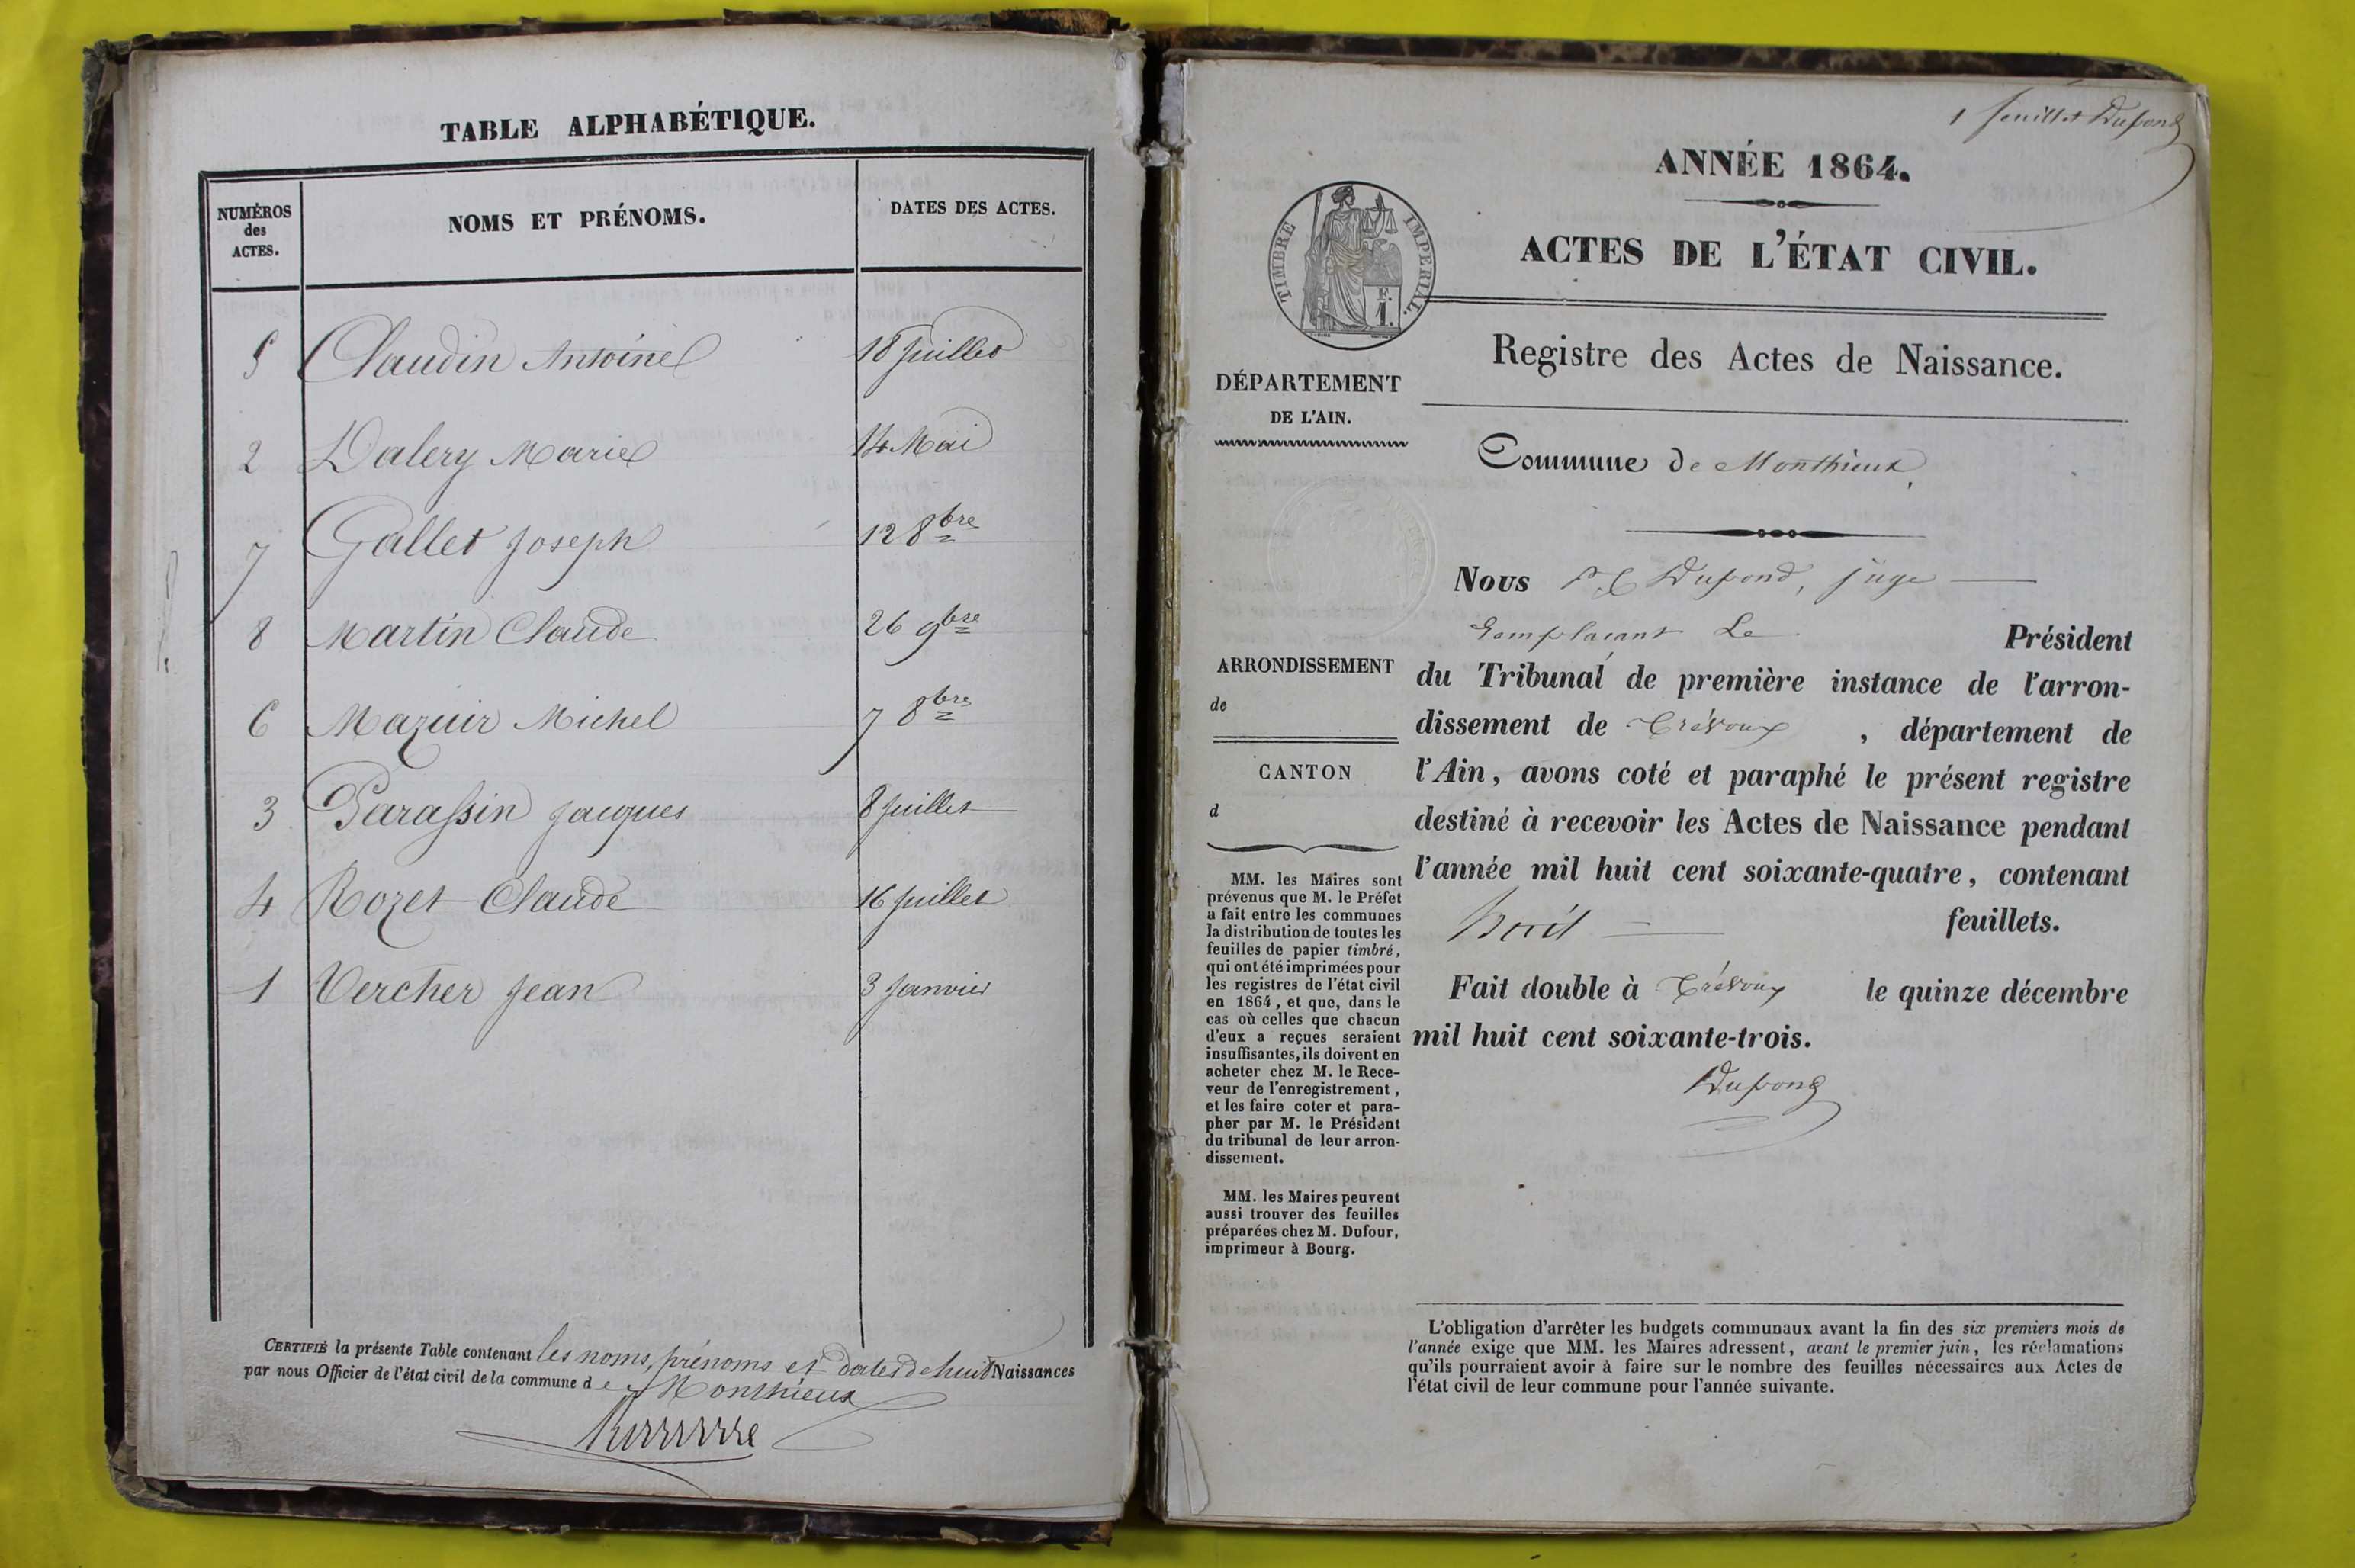 TABLE ALPHABÉTIQUE.
NUMÉROS
des
ACTES.
NOMS ET PRÉNOMS.
DATES DES ACTES.
5 Claudin Antoine 18 Juillet
2 Dalery Marie 14 Mai
7 Gallet Joseph 12 8bre
8 Martin Claude 26 9bre
6 Mazuir Michel 7 8bre
3 Parassin Jacques 8 Juillet
4 Rozet Claude 16 Juillet
1 Vercher Jean 3 Janvier
CERTIFIÉ la présente Table contenant les noms, prénoms et dates de huit Naissances
par nous Officier de l'état civil de la commune de Monthieux
1 feuillet Dupond
ANNÉE 1864.
ACTES DE L'ÉTAT CIVIL.
TIMBRE IMPERIAL.
F.
1.
Registre des Actes de Naissance.
DÉPARTEMENT
DE L'AIN.
Commune de Monthieux
Nous Dupond, juge
remplaçant Le Président
du Tribunal de première instance de l'arron-
dissement de Trévoux, département de
l'Ain, avons coté et paraphé le présent registre
destiné à recevoir les Actes de Naissance pendant
l'année mil huit cent soixante-quatre, contenant
huit feuillets.
Fait double à Trévoux le quinze décembre
mil huit cent soixante-trois.
Dupond
ARRONDISSEMENT
de
CANTON
d
MM. les Maires sont
prévenus que M. le Préfet
a fait entre les communes
la distribution de toutes les
feuilles de papier timbré,
qui ont été imprimées pour
les registres de l'état civil
en 1864, et que, dans le
cas où celles que chacun
d'eux a reçues seraient
insuffisantes, ils doivent en
acheter chez M. le Rece-
veur de l'enregistrement,
et les faire coter et para-
pher par M. le Président
du tribunal de leur arron-
dissement.
MM. les Maires peuvent
aussi trouver des feuilles
préparées chez M. Dufour,
imprimeur à Bourg.
L'obligation d'arrêter les budgets communaux avant la fin des six premiers mois de
l'année exige que MM. les Maires adressent, avant le premier juin, les réclamations
qu'ils pourraient avoir à faire sur le nombre des feuilles nécessaires aux Actes de
l'état civil de leur commune pour l'année suivante.